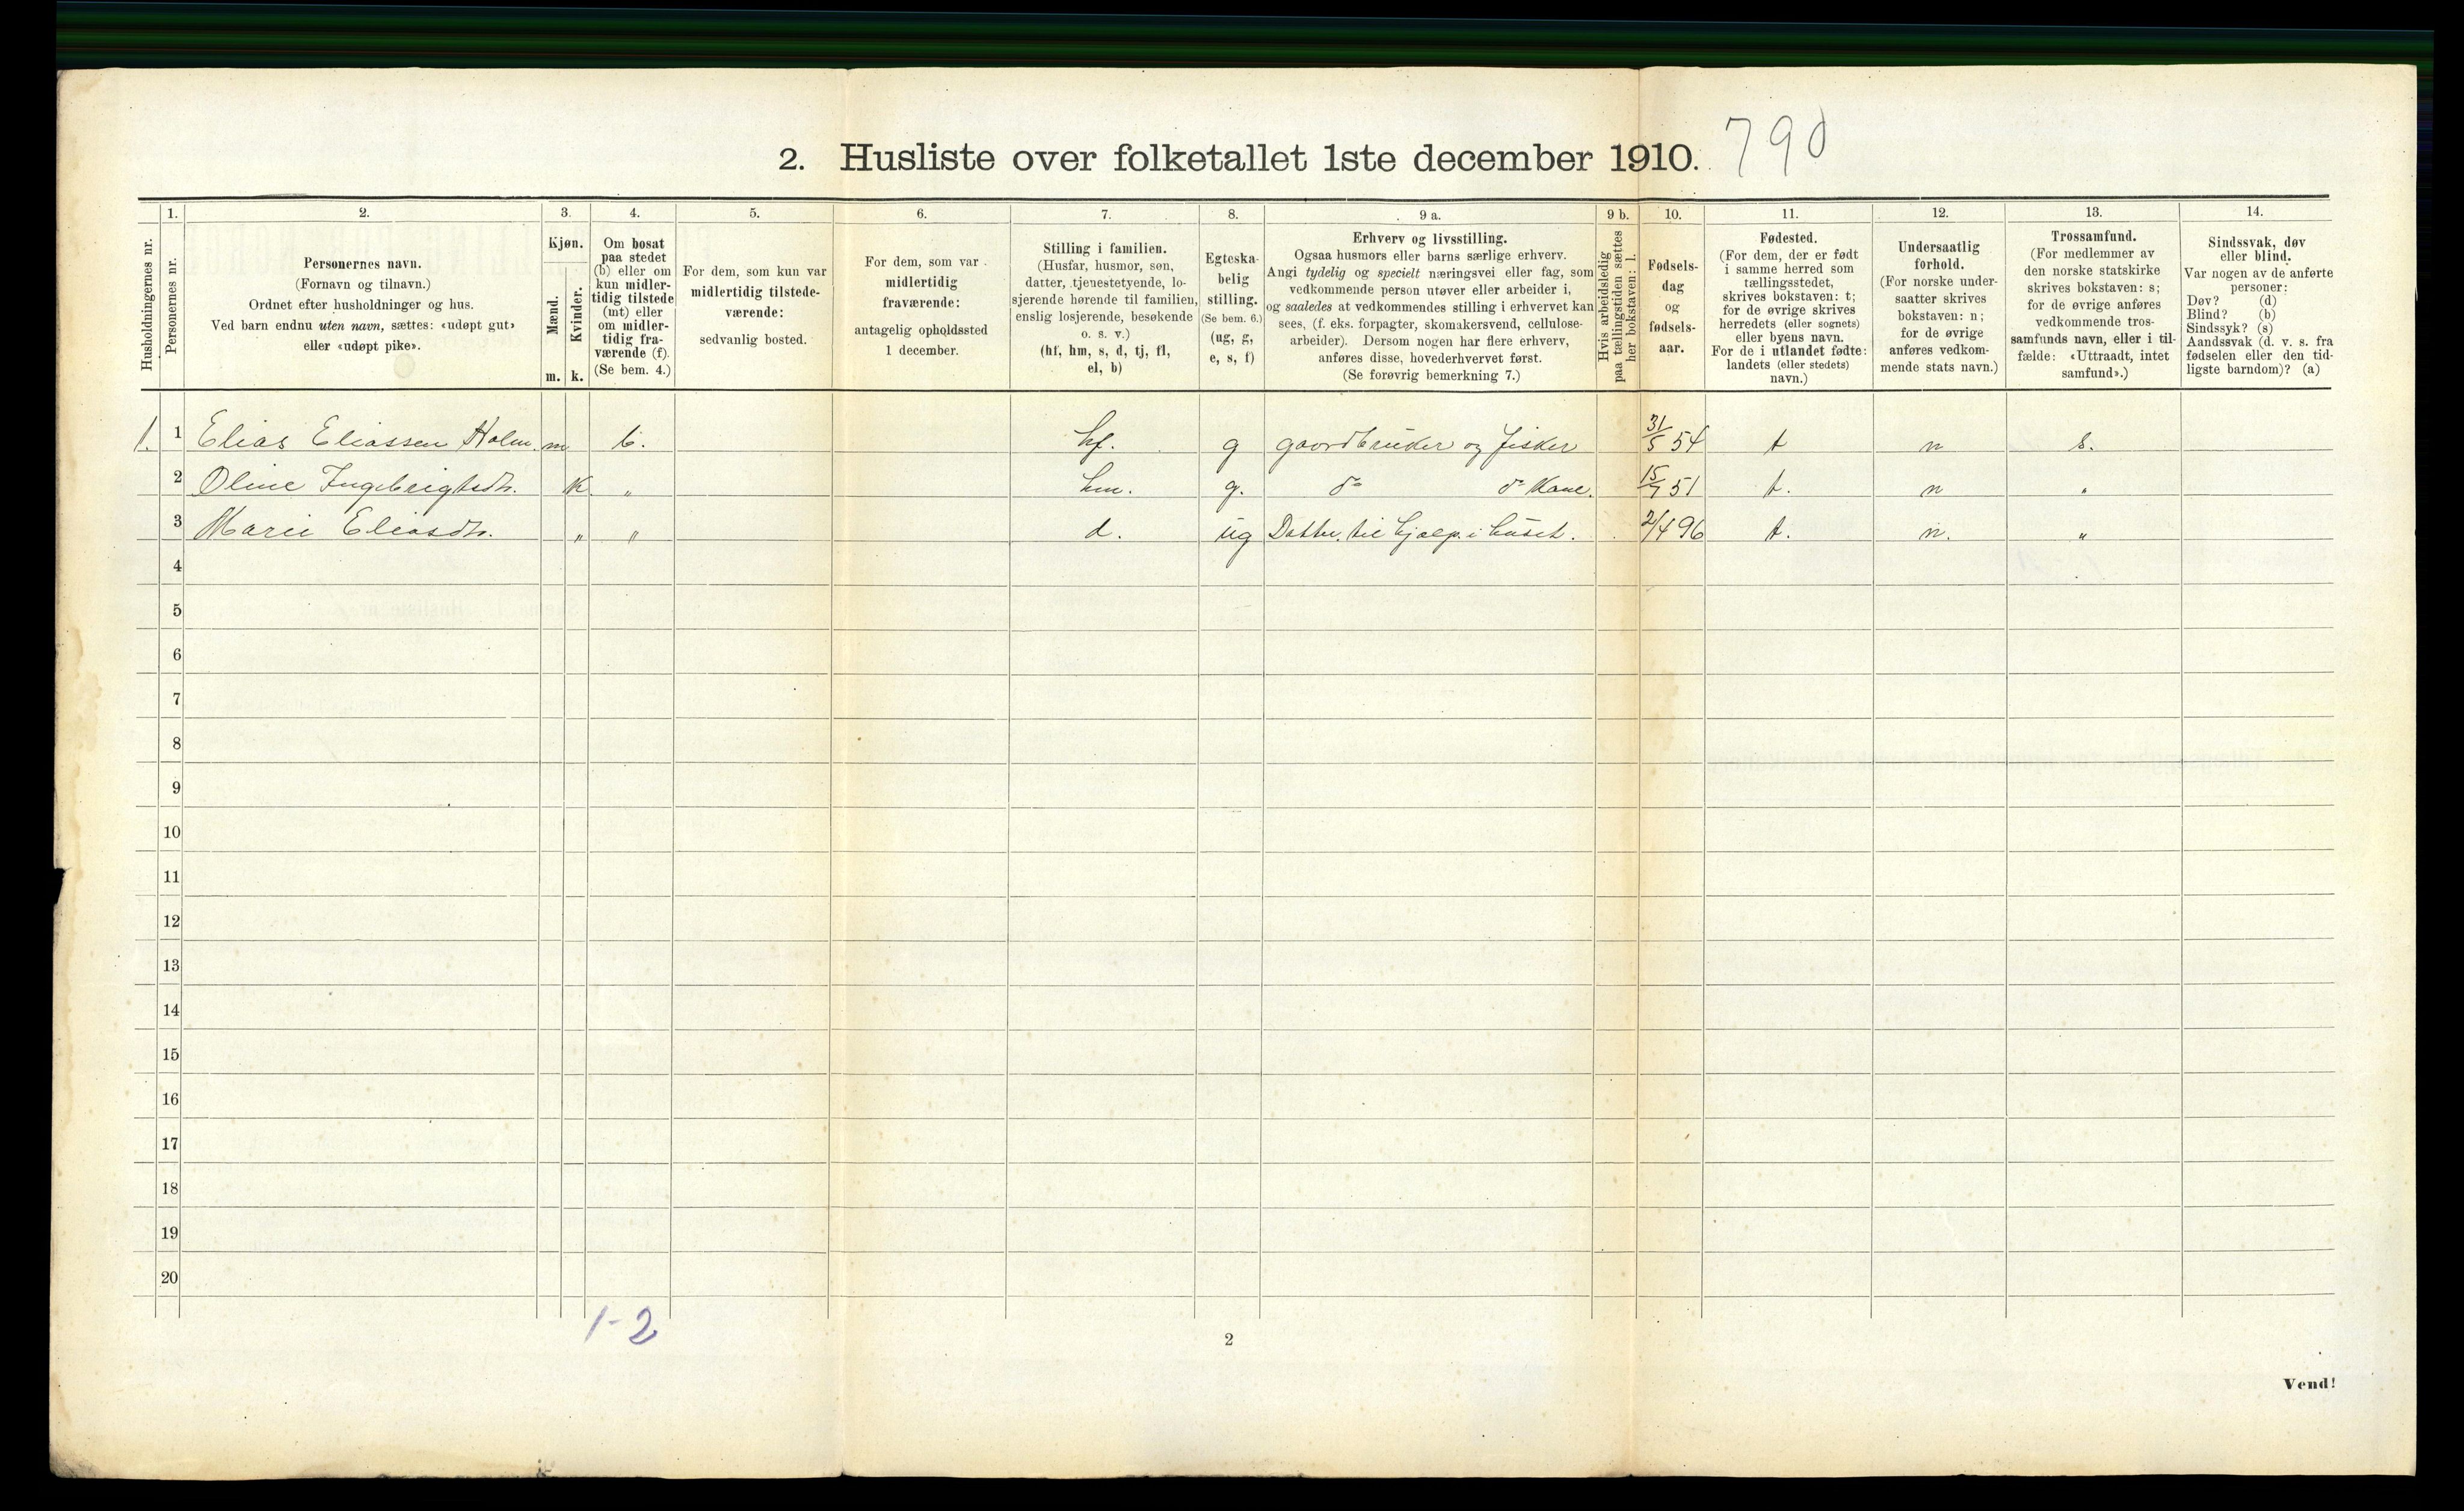 2. Husliste over folketallet 1ste december 1910. 790
Husholdningernes nr.
1.
Personernes nr.
2.
Personernes navn.
(Fornavn og tilnavn.)
Ordnet efter husholdninger og hus.
Ved barn endnu uten navn, sættes: «udøpt gut»
eller «udøpt pike».
3.
Kjøn.
Mænd.
Kvinder.
m. k.
4.
Om bosat
paa stedet
(b) eller om
kun midler-
tidig tilstede
(mt) eller
om midler-
tidig fra-
værende (f).
(Se bem. 4.)
5.
For dem, som kun var
midlertidig tilstede-
værende:
sedvanlig bosted.
6.
For dem, som var
midlertidig
fraværende:
antagelig opholdssted
1 december.
7.
Stilling i familien.
(Husfar, husmor, søn,
datter, tjenestetyende, lo-
sjerende hørende til familien,
enslig losjerende, besøkende
o. s. v.)
(hf, hm, s, d, tj, fl,
el, b)
8.
Egteska-
belig
stilling.
(Se bem. 6.)
(ug, g,
e, s, f)
9 a.
Erhverv og livsstilling.
Ogsaa husmors eller barns særlige erhverv.
Angi tydelig og specielt næringsvei eller fag, som
vedkommende person utøver eller arbeider i,
og saaledes at vedkommendes stilling i erhvervet kan
sees, (f. eks. forpagter, skomakersvend, cellulose-
arbeider). Dersom nogen har flere erhverv,
anføres disse, hovederhvervet først.
(Se forøvrig bemerkning 7.)
9 b.
Hvis arbeidsledig
paa tællingstiden sættes
her bokstaven: l.
10.
Fødsels-
dag
og
fødsels-
aar.
11.
Fødested.
(For dem, der er født
i samme herred som
tællingsstedet,
skrives bokstaven: t;
for de øvrige skrives
herredets (eller sognets)
eller byens navn.
For de i utlandet fødte:
landets (eller stedets)
navn.)
12.
Undersaatlig
forhold.
(For norske under-
saatter skrives
bokstaven: n;
for de øvrige
anføres vedkom-
mende stats navn.)
13.
Trossamfund.
(For medlemmer av
den norske statskirke
skrives bokstaven: s;
for de øvrige anføres
vedkommende tros-
samfunds navn, eller i til-
fælde: «Uttraadt, intet
samfund».)
14.
Sindssvak, døv
eller blind.
Var nogen av de anførte
personer:
Døv? (d)
Blind? (b)
Sindssyk? (s)
Aandssvak (d. v. s. fra
fødselen eller den tid-
ligste barndom)? (a)
1. 1 Elias Eliassen Holm. m b. hf. g gaardbruker og fisker 31/5 54 t n s.
2 Oline Ingebrigtsdtr. K " hm. g. do do Kone. 15/7 51 t. n "
3 Marie Eliasdtr. " " d. ug Datter. til hjælp i huset. 2/4 96 t. n. "
4
5
6
7
8
9
10
11
12
13
14
15
16
17
18
19
20
1-2
2
Vend!